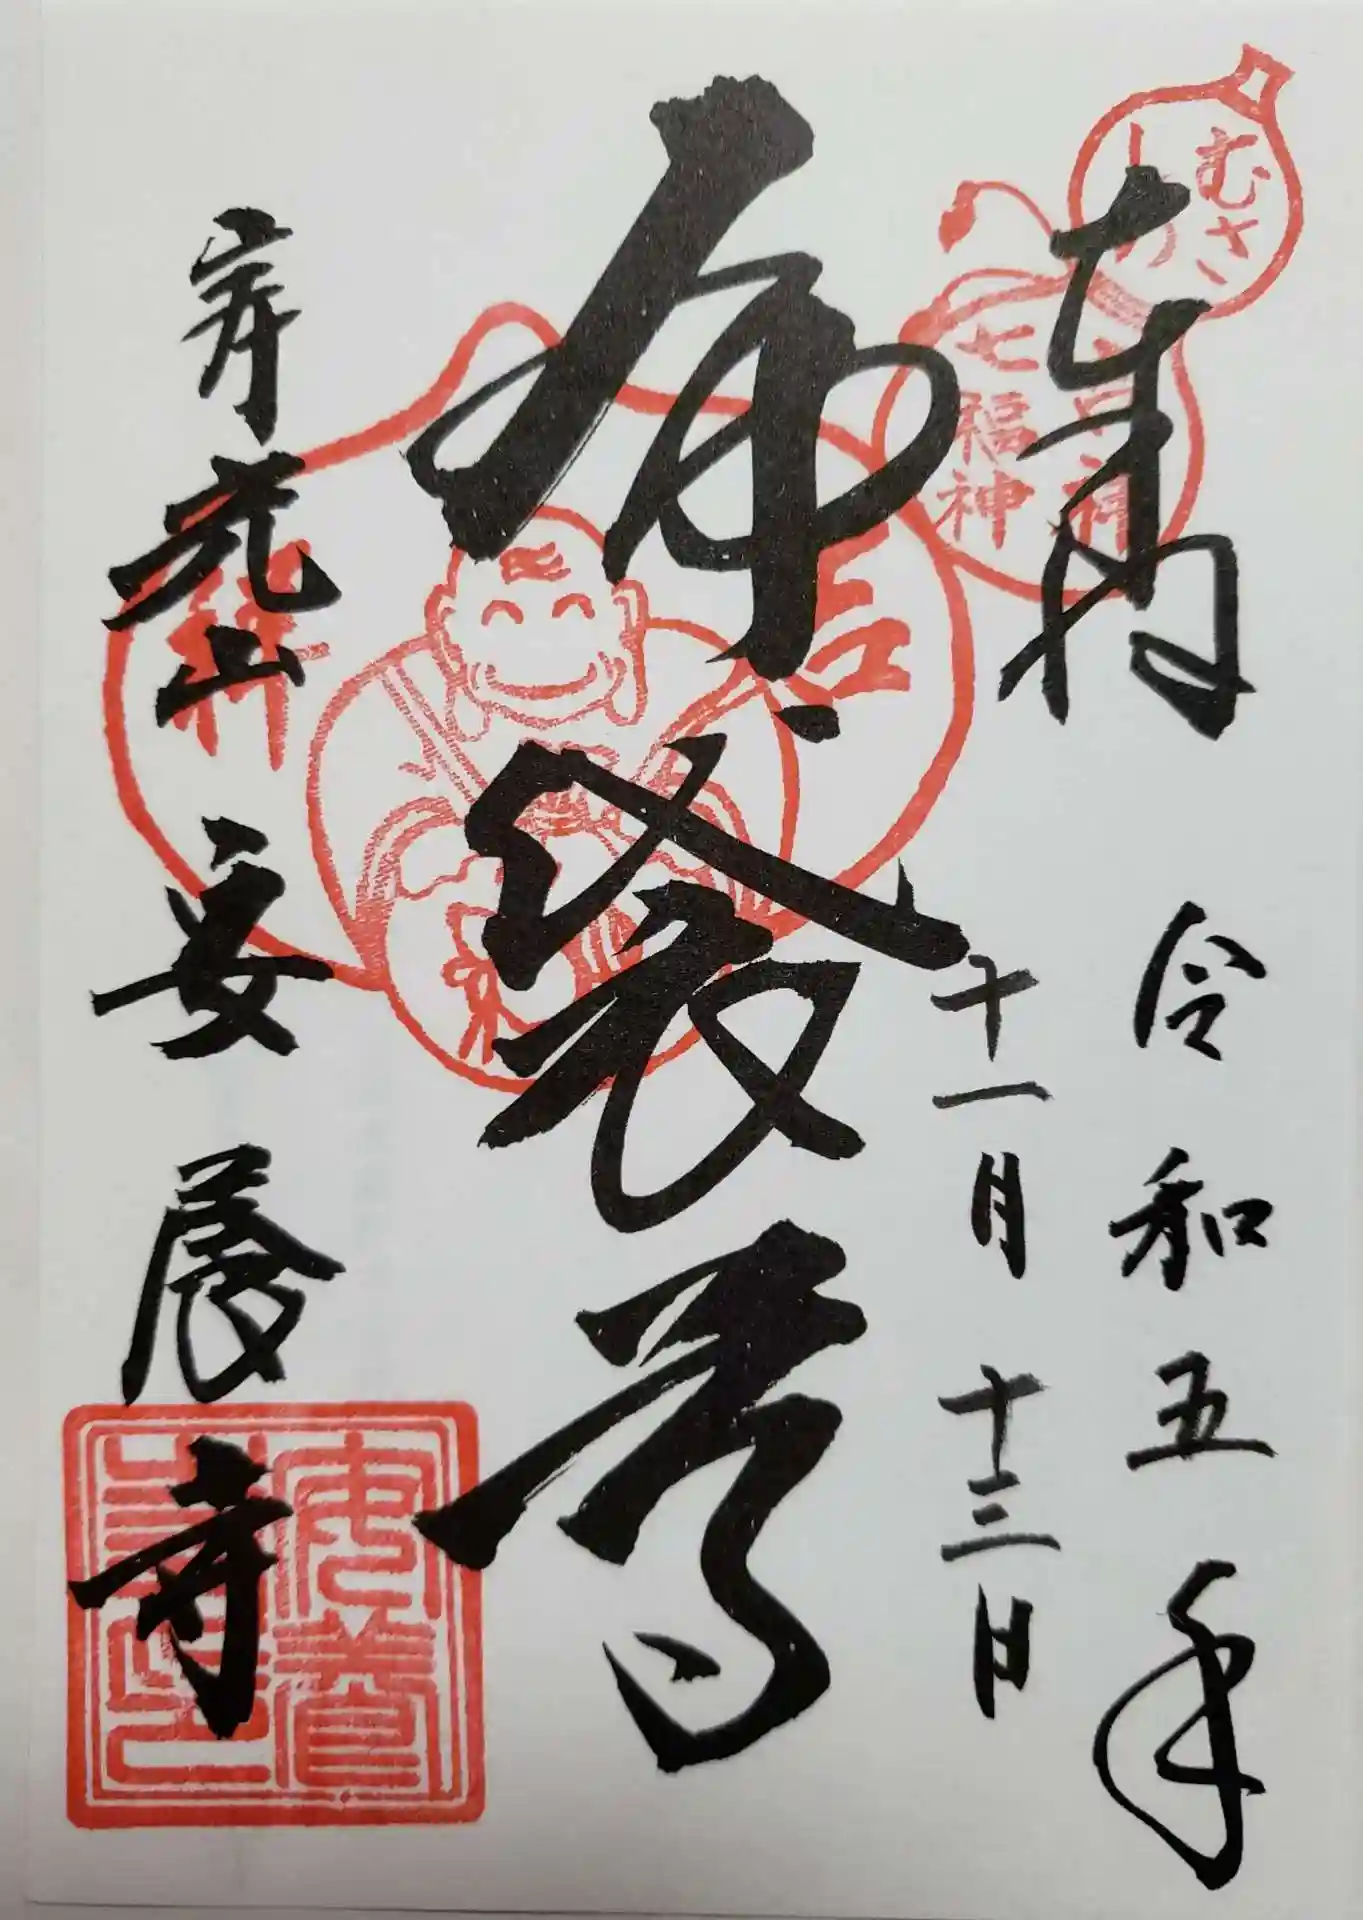 奉拝
令和五年
十一月十三日
むさしの
吉祥
七福神
布袋尊
吉祥
安養寺
安養寺印